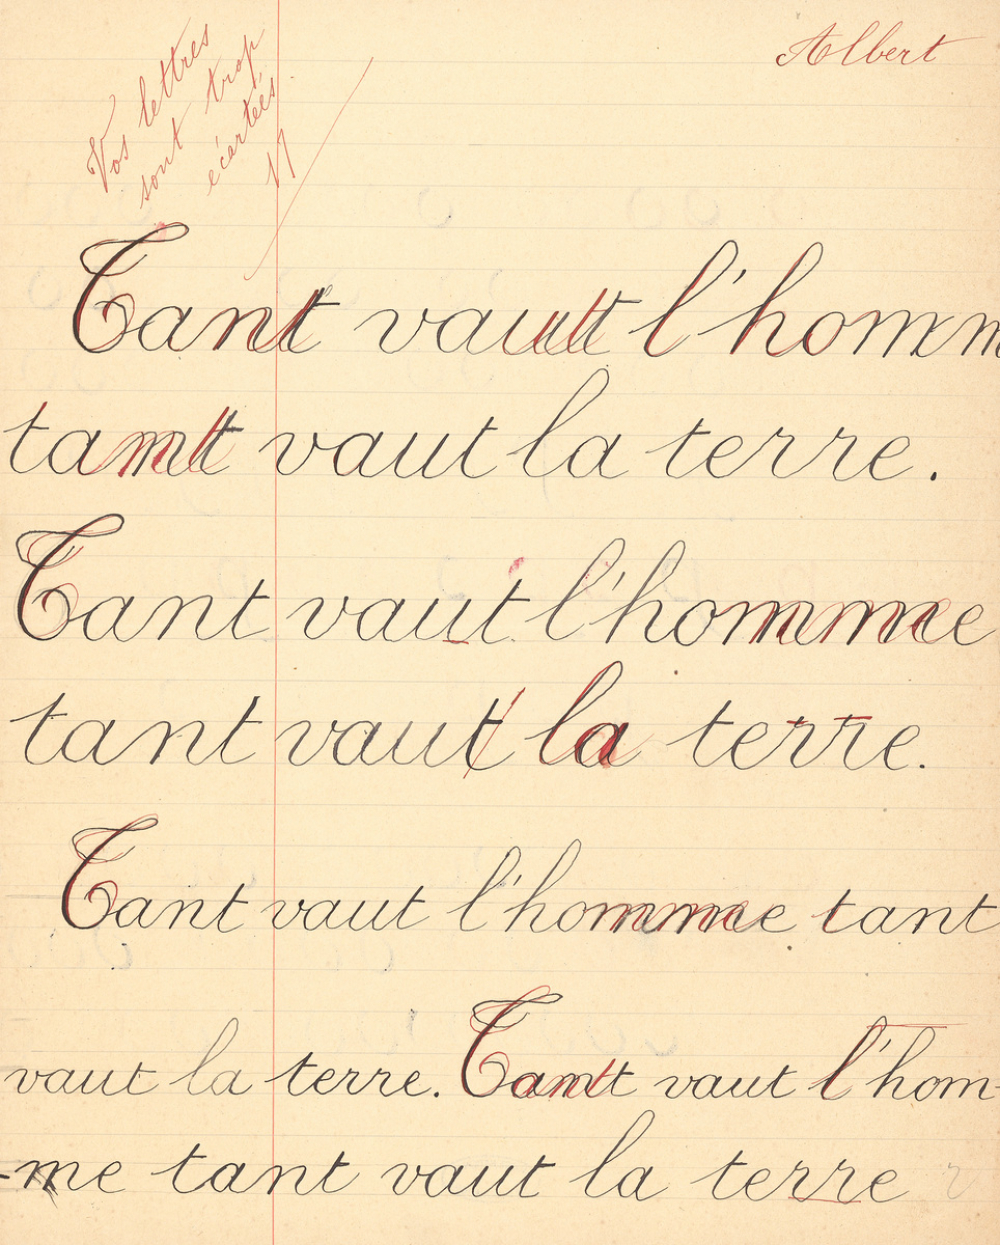 Albert
Vos lettres
sont trop
écartées
17
Tant vaut l'homm
tant vaut la terre.
Tant vaut l'homme
tant vaut la terre.
Tant vaut l'homme tant
vaut la terre. Tant vaut l'hom-
-me tant vaut la terre